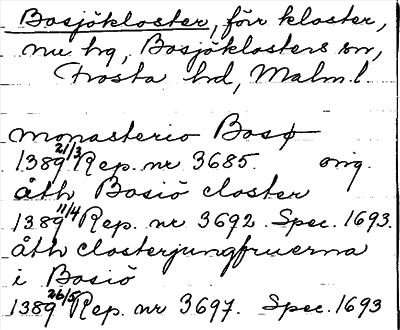 Bosjökloster, förr kloster,
nu hg, Bosjöklosters sn,
Frosta hd, Malm. l.
monasterio Bosø
1389 21/3 Rep. nr 3685. orig.
åth Bosiö closter
1389 11/4 Rep. nr 3692. Spec. 1693.
åth closterjungfruerna
i Bosiö
1389 26/5 Rep. nr 3697. Spec. 1693